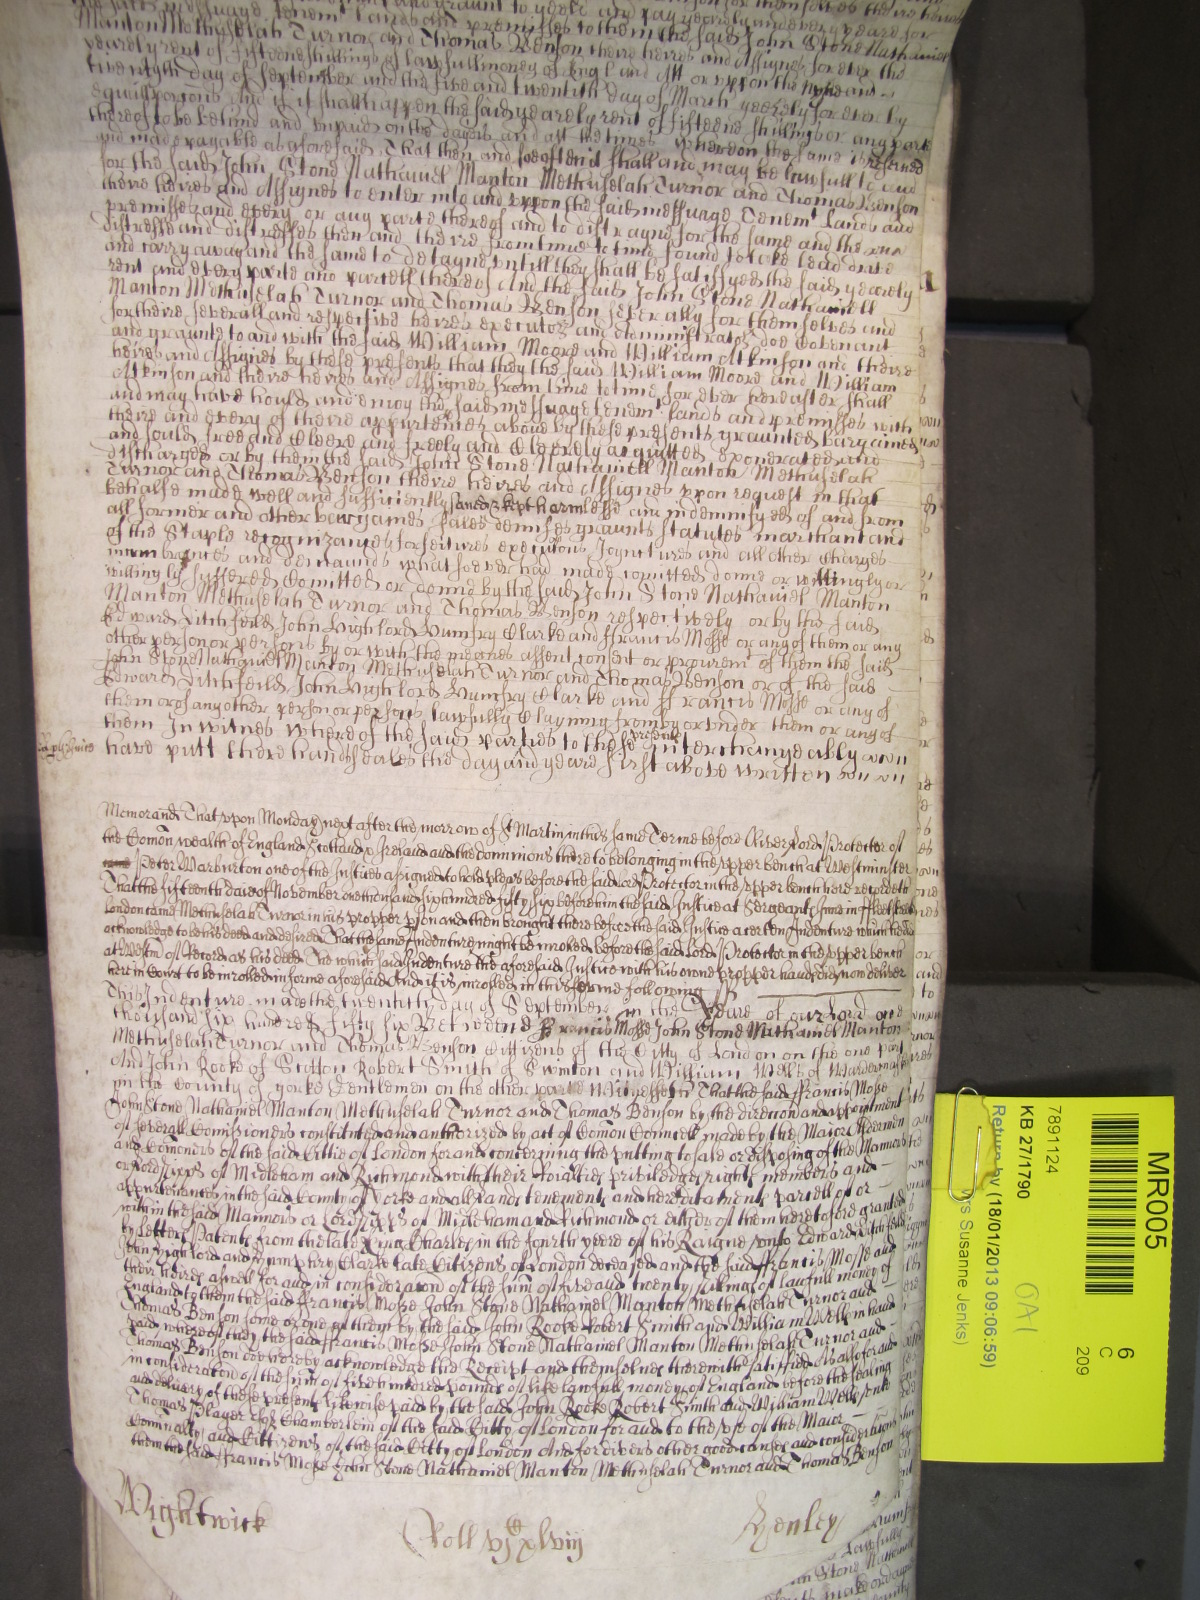 Manton Methuselah Turnor and Thomas Benson theire heires and Assignes for ever the
yearely rent of fifteene shillings of lawfull money of Engl and Att or uppon the nyne and
twentyth day of September and the five and twentith day of March yeerely for ever by
equall porcons And if it shall happen the said yearely rent of fifteene shillings or any parte
thereof to be behind and unpaid on the dayes and att the times whereon the same is reserved
and made payable as aforesaid That then and soe often it shall and may be lawfull to and
for the said John Stone Nathaniel Manton Methuselah Turnor and Thomas Benson
theire heires and Assignes to enter into and uppon the said messuage Tenemt Lands and
premisses and every or any parte thereof and to distrayne for the same and the
distresse and distresses then and there from time to time found to take lead drive
and carry away and the same to detayne untill they shall be satisfyed the said yeerely
rent and every parte and parcell thereof And the said John Stone Nathaniell
Manton Methuselah Turnor and Thomas Benson severally for themselves and
for theire severall and respective heires executors and Administrators doe Covenant
and graunt to and with the said William Moore and William Atkinson and theire
heires and Assignes by these presents that they the said William Moore and William
Atkinson and theire heires and Assignes from time to time for ever hereafter shall
and may have hould and enioy the said messuage tenemt lands and premisses with
theire and every of theire appurtences above by these presents graunted bargained
and sould free and Cleere and freely and Cleerely acquitted exonerated and
discharged or by them the said John Stone Nathaniell Manton Methuselah
Turnor and Thomas Benson theire heires and Assignes uppon request in that
behalfe made well and sufficiently saved & kept harmlesse and indemnifyed of and from
all former and other bargaines sales demises graunts statutes marchant and
of the Staple recognizances forfeitures execucons Joynctures and all other Charges
incumbrances and demaunds whatsoever had made comitted done or wittingly or
willingly suffered Comitted or done by the said John Stone Nathaniel Manton
Manton Methuselah Turnor and Thomas Benson respectively or by the said
Edward Ditchfeild John Highlord Humfry Clarke and Francis Mosse or any of them or any
other person or persons by or with the meanes assent consent or procuremt of them the said
John Stone Nathaniel Manton Methuselah Turnor and Thomas Benson or of the said
Edward Ditchfeild John Highlord Humfry Clarke and Francis Mosse or any of
them or of any other person or persons lawfully Clayming from by or under them or any of
them In witnes whereof the said parties to these presents interchangeably
have putt there hands & seales the day and yeare first above written
Memorand That upon Monday next after the morrow of St Martin in this same Terme before Oliver Lord Protector of
the Comon wealth of England Scotland & Ireland and the dominions thereto belonging in the upper bench at Westminster
Peter Warburton one of the Justices assigned to hold pleas before the said Lord Protector in the upper bench here recordeth
That the fifteenth day of November one thousand six hundred fifty six before him the said Justice at Sergeants Inne in Fleetstreet
London came Methuselah Turnor in his propper pson and then brought there before the said Justice a certen Indenture which he did
acknowledge to be his deed and desired That the same Indenture might be inroled before the said Lord Protector in the upper bench
at Westm of Record as his deed The which said Indenture the aforesaid Justice with his owne propper hands doth now deliver
here in Court to be inroled in forme aforesaid And it is inrolled in this forme following
This Indenture made the twentith day of September in the Yeare of our Lord one
thousand six hundred fifty six Betweene Francis Mosse John Stone Nathaniel Manton
Methuselah Turnor and Thomas Benson Cittizens of the Citty of London on the one part
And John Rooke of Scotton Robert Smith of Swinton and William Wells of
in the County of yorke Gentlemen on the other parte Witnesseth That the said Francis Mosse
John Stone Nathaniel Manton Methuselah Turnor and Thomas Benson by the direcion and appointment
of severall Comissioners constituted and authorized by act of Comon Councell made by the Maior Aldermen
and Comons of the said Cittie of London for and concerning the putting to sale or disposing of the Mannors
or Lordshipps of Midleham and Richmond with their roialties priviledges rights members and
appurtenances in the said County of Yorke and all lands tenements and hereditaments parcell of or
within the said Mannors or Lordshipps of Midleham and Richmond or either of them heretofore granted
by Letters Patents from the late King Charles in the fourth yeere of his Raigne unto Edward Ditchfeild
John Highlord and Humphry Clarke late Citizens of London deceased and the said Francis Mosse and
their heires aswell for and in consideracon of the sum of five and twenty shillings of lawfull money of
England to them the said Francis Mosse John Stone Nathaniel Manton Methuselah Turnor and
Thomas Benson some or one of them by the said John Rooke Robert Smith and William Wells in hand
paid whereof they the said Francis Mosse John Stone Nathaniel Manton Methuselah Turnor and
Thomas Benson doe hereby acknowledge the Receipt and themselves therewith satisfied As also for and
in consideracon of the sum of five hundred pounds of like lawfull money of England before the sealing
and delivery of these presents likewise paid by the said John Rooke Robert Smith and William Wells unto
Thomas Player Esq Chamberlein of the said Citty of London for and to the use of the Maior
Cominalty and Cittizens of the said Citty of London And for divers other good causes and consideracons
them the said Francis Mosse John Stone Nathaniel Manton Methuselah Turnor and Thomas Benson
Wightwick
Roll vjxxviij
Henley
MR005
6
C
209
7891124
KB 27/1790
OA1
Return by (18/01/2013 09:06:59)
rs Susanne Jenks)